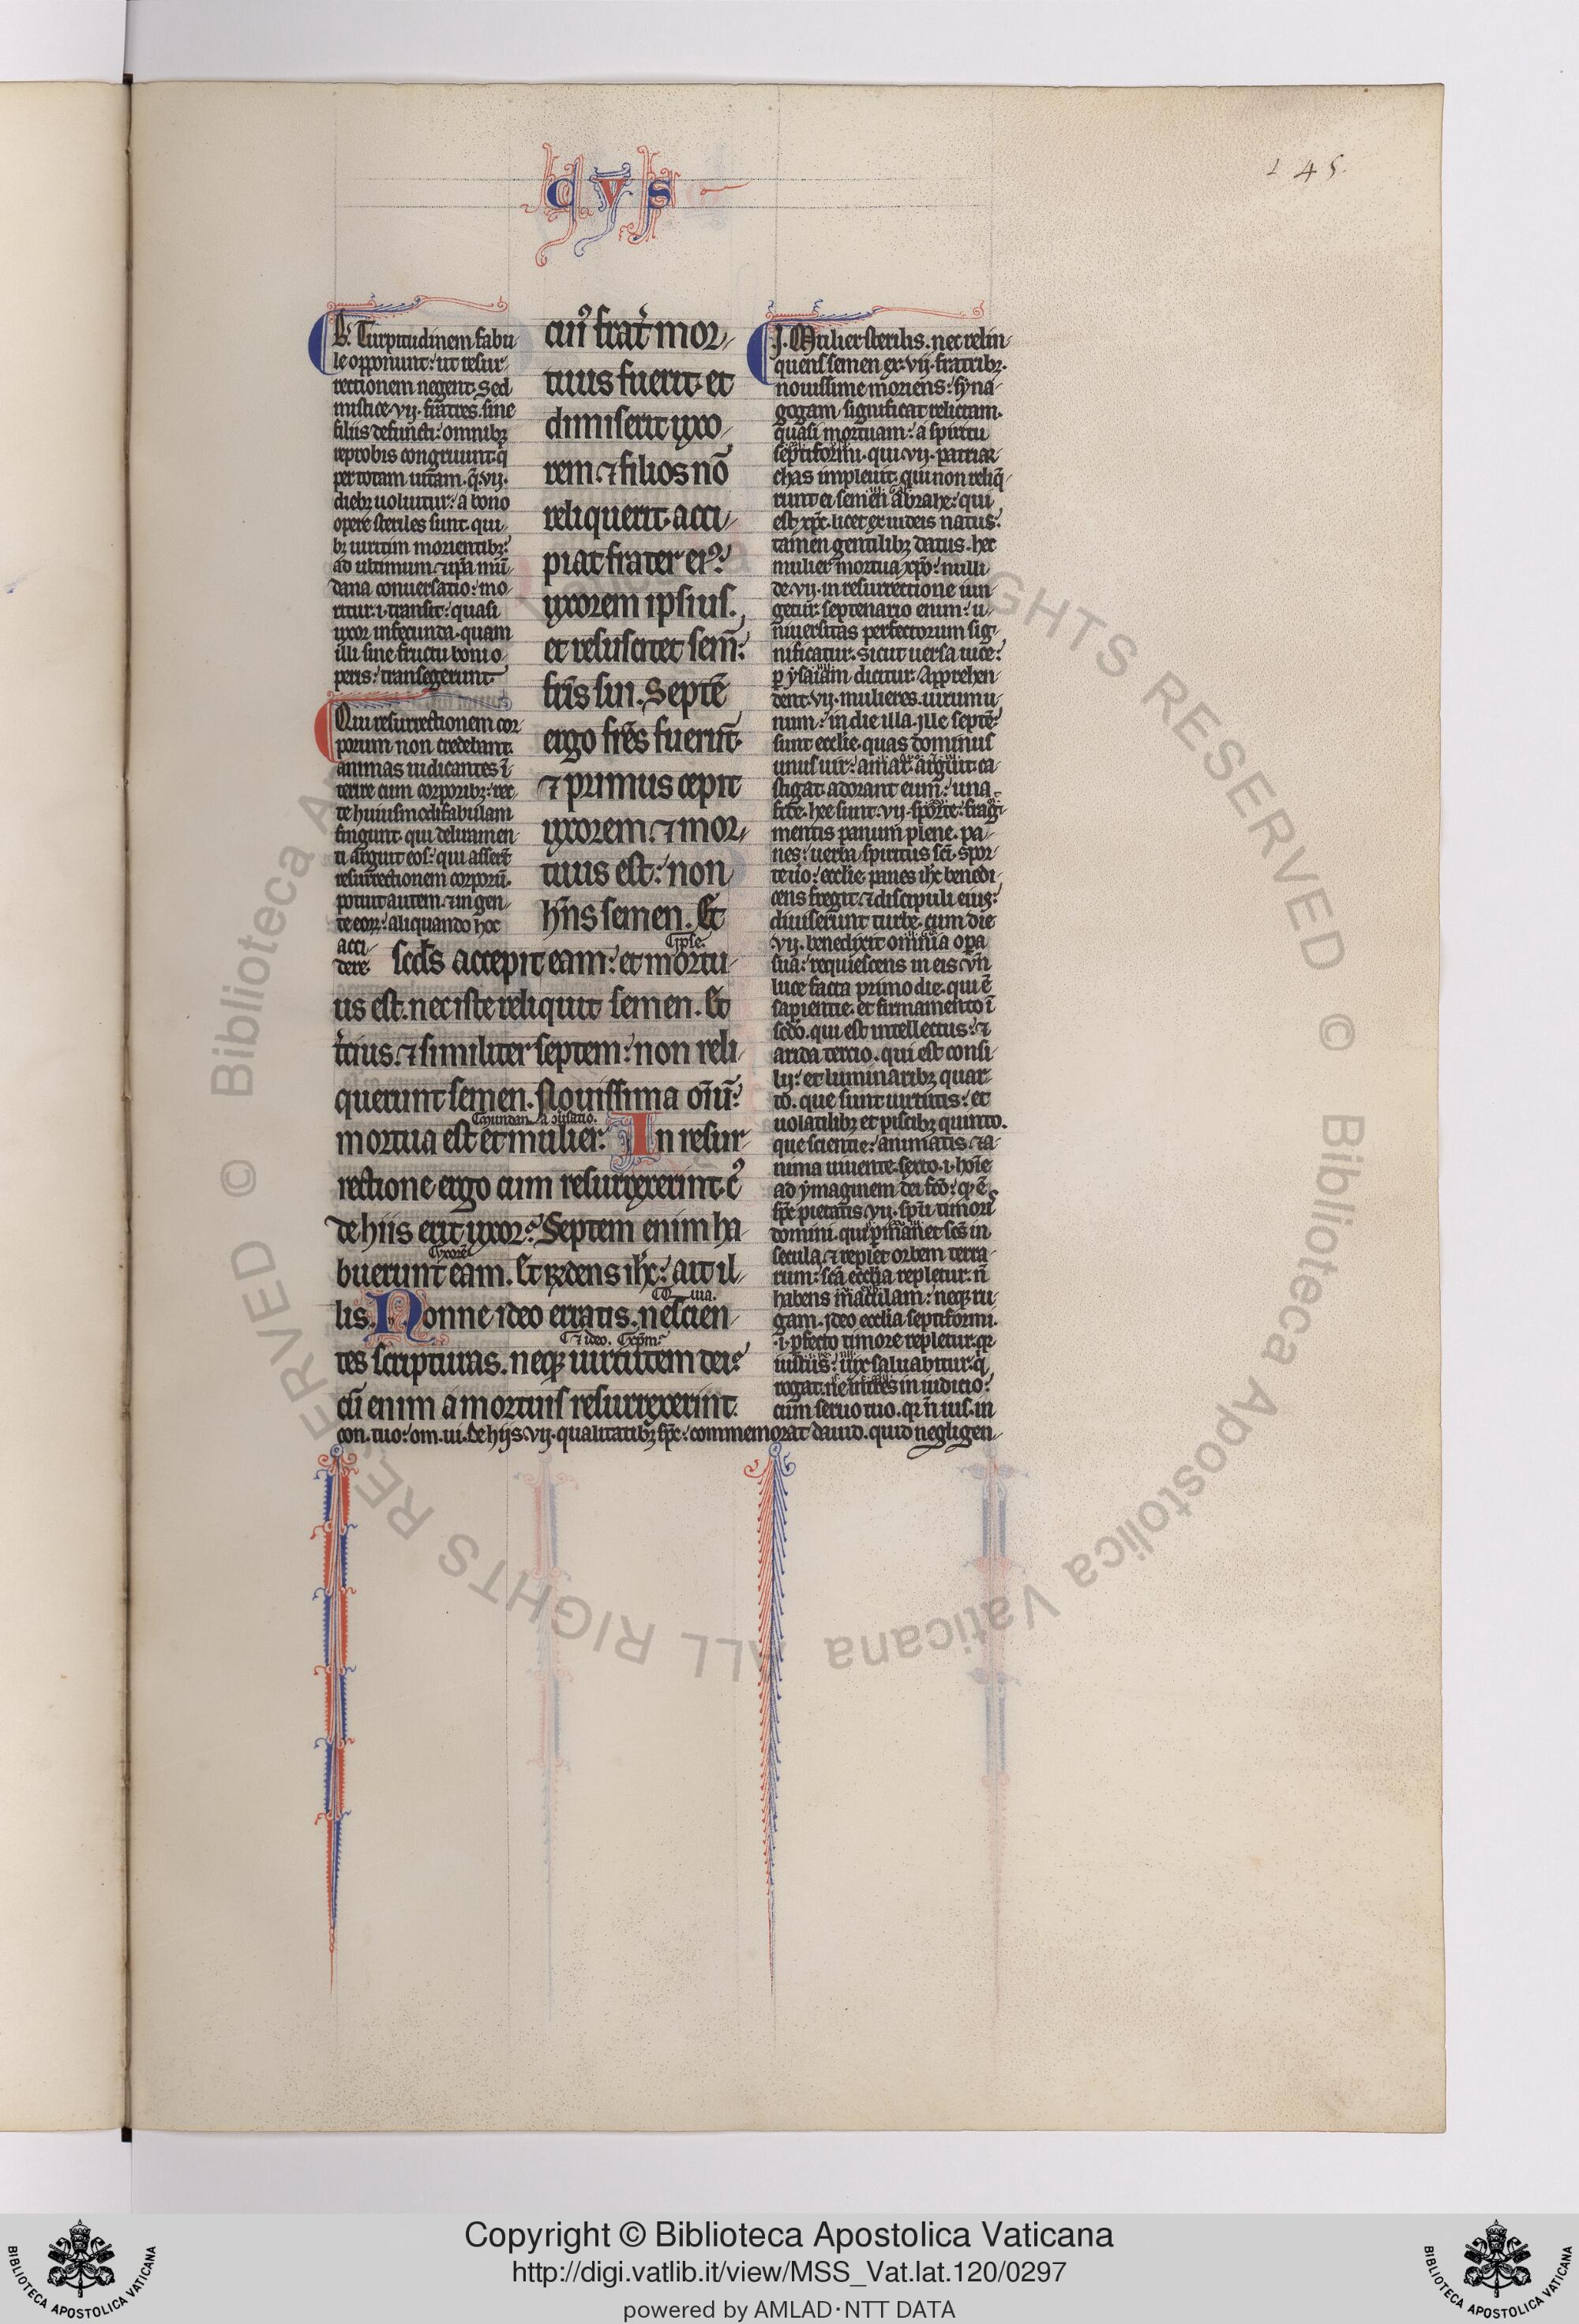 cvs
145.
B. Turpitudinem fabu
le opponunt: ut resur
rectionem negent. Sed
mistice. vij. fratres. sine
filiis defuncti: omnibꝫ
reprobis congruunt. q̄
per totam uitam. q̄. vij.
diebꝫ uoluitur: a bono
opere steriles sunt. qui
bꝫ uiritim morientibꝫ:
ad ultimum ⁊ ip̄a mū
dana conuersatio: mo
ritur. i. transit: quasi
uxor infecunda. quam
illi sine fructu boni o
peris: transegerunt
Qui resurrectionem cor
porum non credebant.
animas iudicantes ī
terire cum corporibꝫ: rec
te huiusmodi fabulam
fingunt. qui deliramen
ti arguit eos: qui asserūt
resurrectionem corporū.
potuit autem ⁊ in gen
te eoꝝ: aliquando hoc
acci
dere.
cuiꝰ frat̓ mor
tuus fuerit. et
dimiserit uxo
rem. ⁊ filios nō
reliquerit. acci
piat frater eiꝰ:
uxorem ipsius.
et resuscitet sem̄:
fr̄is sui. Septē
ergo fr̄es fuerūt.
⁊ primus cepit
uxorem. ⁊ mor
tuus est: non
hn̄s semen. Et
ipse.
scd̄s accepit eam: et mortu
us est. nec iste reliquit semen. Et
t̓cius. ⁊ similiter septem: non reli
querunt semen. Nouissima oīū:
mundana ꝯuersatio.
mortua est et mulier. In resur
rectione ergo cum resurrexerint. cꝰ
de hiis erit uxor: Septem enim ha
uxorē
buerunt eam. Et rn̄dens ih̄c: ait il
lis. Nonne ideo erratis. nescien
⁊ ideo. xp̄m:
tes scripturas. neqꝫ uirtutem dei:
cū enim a mortuis resurrexerint.
J. Mulier sterilis. nec relin
quens semen ex. vij. fratribꝫ.
nouissime moriens: syna
gogam significat relictam.
quasi mortuam: a spiritu
septiformi. qui. vij. patriar
chas impleuit. qui non reliq̄
runt ei semen abrahe: qui
est xp̄c. licet ex iudeis natus:
tamen gentilibꝫ datus. hec
mulier mortua xp̄o: nulli
de. vij. in resurrectione iun
getur. septenario enim: u
niuersitas perfectorum sig
nificatur. sicut uersa uice:
ꝑ ysaiam dicitur. Apprehen
dent. vij. mulieres. uirum u
num: in die illa. Jlle septē:
sunt ecclie. quas dominus
unus uir: amat. arguit. ca
stigat. adorant eum: una
fide. hee sunt. vij. sporte: frag
mentis panum plene. pa
nes: uerba spiritus sc̄i. spor
te uo: ecclie. panes ih̄c benedi
cens fregit. ⁊ discipuli eius:
diuiserunt turbe. cum die
vij. benedixit omnia oꝑa
sua: requiescens in eis. vn̄
luce facta primo die. qui ē
sapientie. et firmamento ī
scd̄o. qui est intellectus: ⁊
arida tercio. qui est consi
lij: et luminaribꝫ quar
to. que sunt uirtutis: et
uolatilibꝫ et piscibꝫ quinto.
que scientie: animatis ⁊ a
nima uiuente. sexto. i. hoīe
ad ymaginem dei fc̄o:
sp̄c pietatis. vij. sp̄ti timoris
domini. qui ꝑmanet sc̄s in
secula. ⁊ replet orbem terra
rum: sc̄a ecclia repletur. n̄
habens maculam: neqꝫ ru
gam. Jdeo ecclia septiformi.
.i. ꝑfecto timore repletur. qꝛ
iustus: uix saluabitur. q̄
rogat: ne intres in iudicio:
cum seruo tuo. qꝛ n̄ ius. in
con. tuo: om. ui. De hijs. vij. qualitatibꝫ sp̄c: commemorat dauid. quid negligen
Copyright © Biblioteca Apostolica Vaticana
http://digi.vatlib.it/view/MSS_Vat.lat.120/0297
powered by AMLAD·NTT DATA
BIBLIOTECA APOSTOLICA VATICANA
BIBLIOTECA APOSTOLICA VATICANA
© Biblioteca Apostolica Vaticana ALL RIGHTS RESERVED © Biblioteca Apostolica Vaticana ALL RIGHTS RESERVED